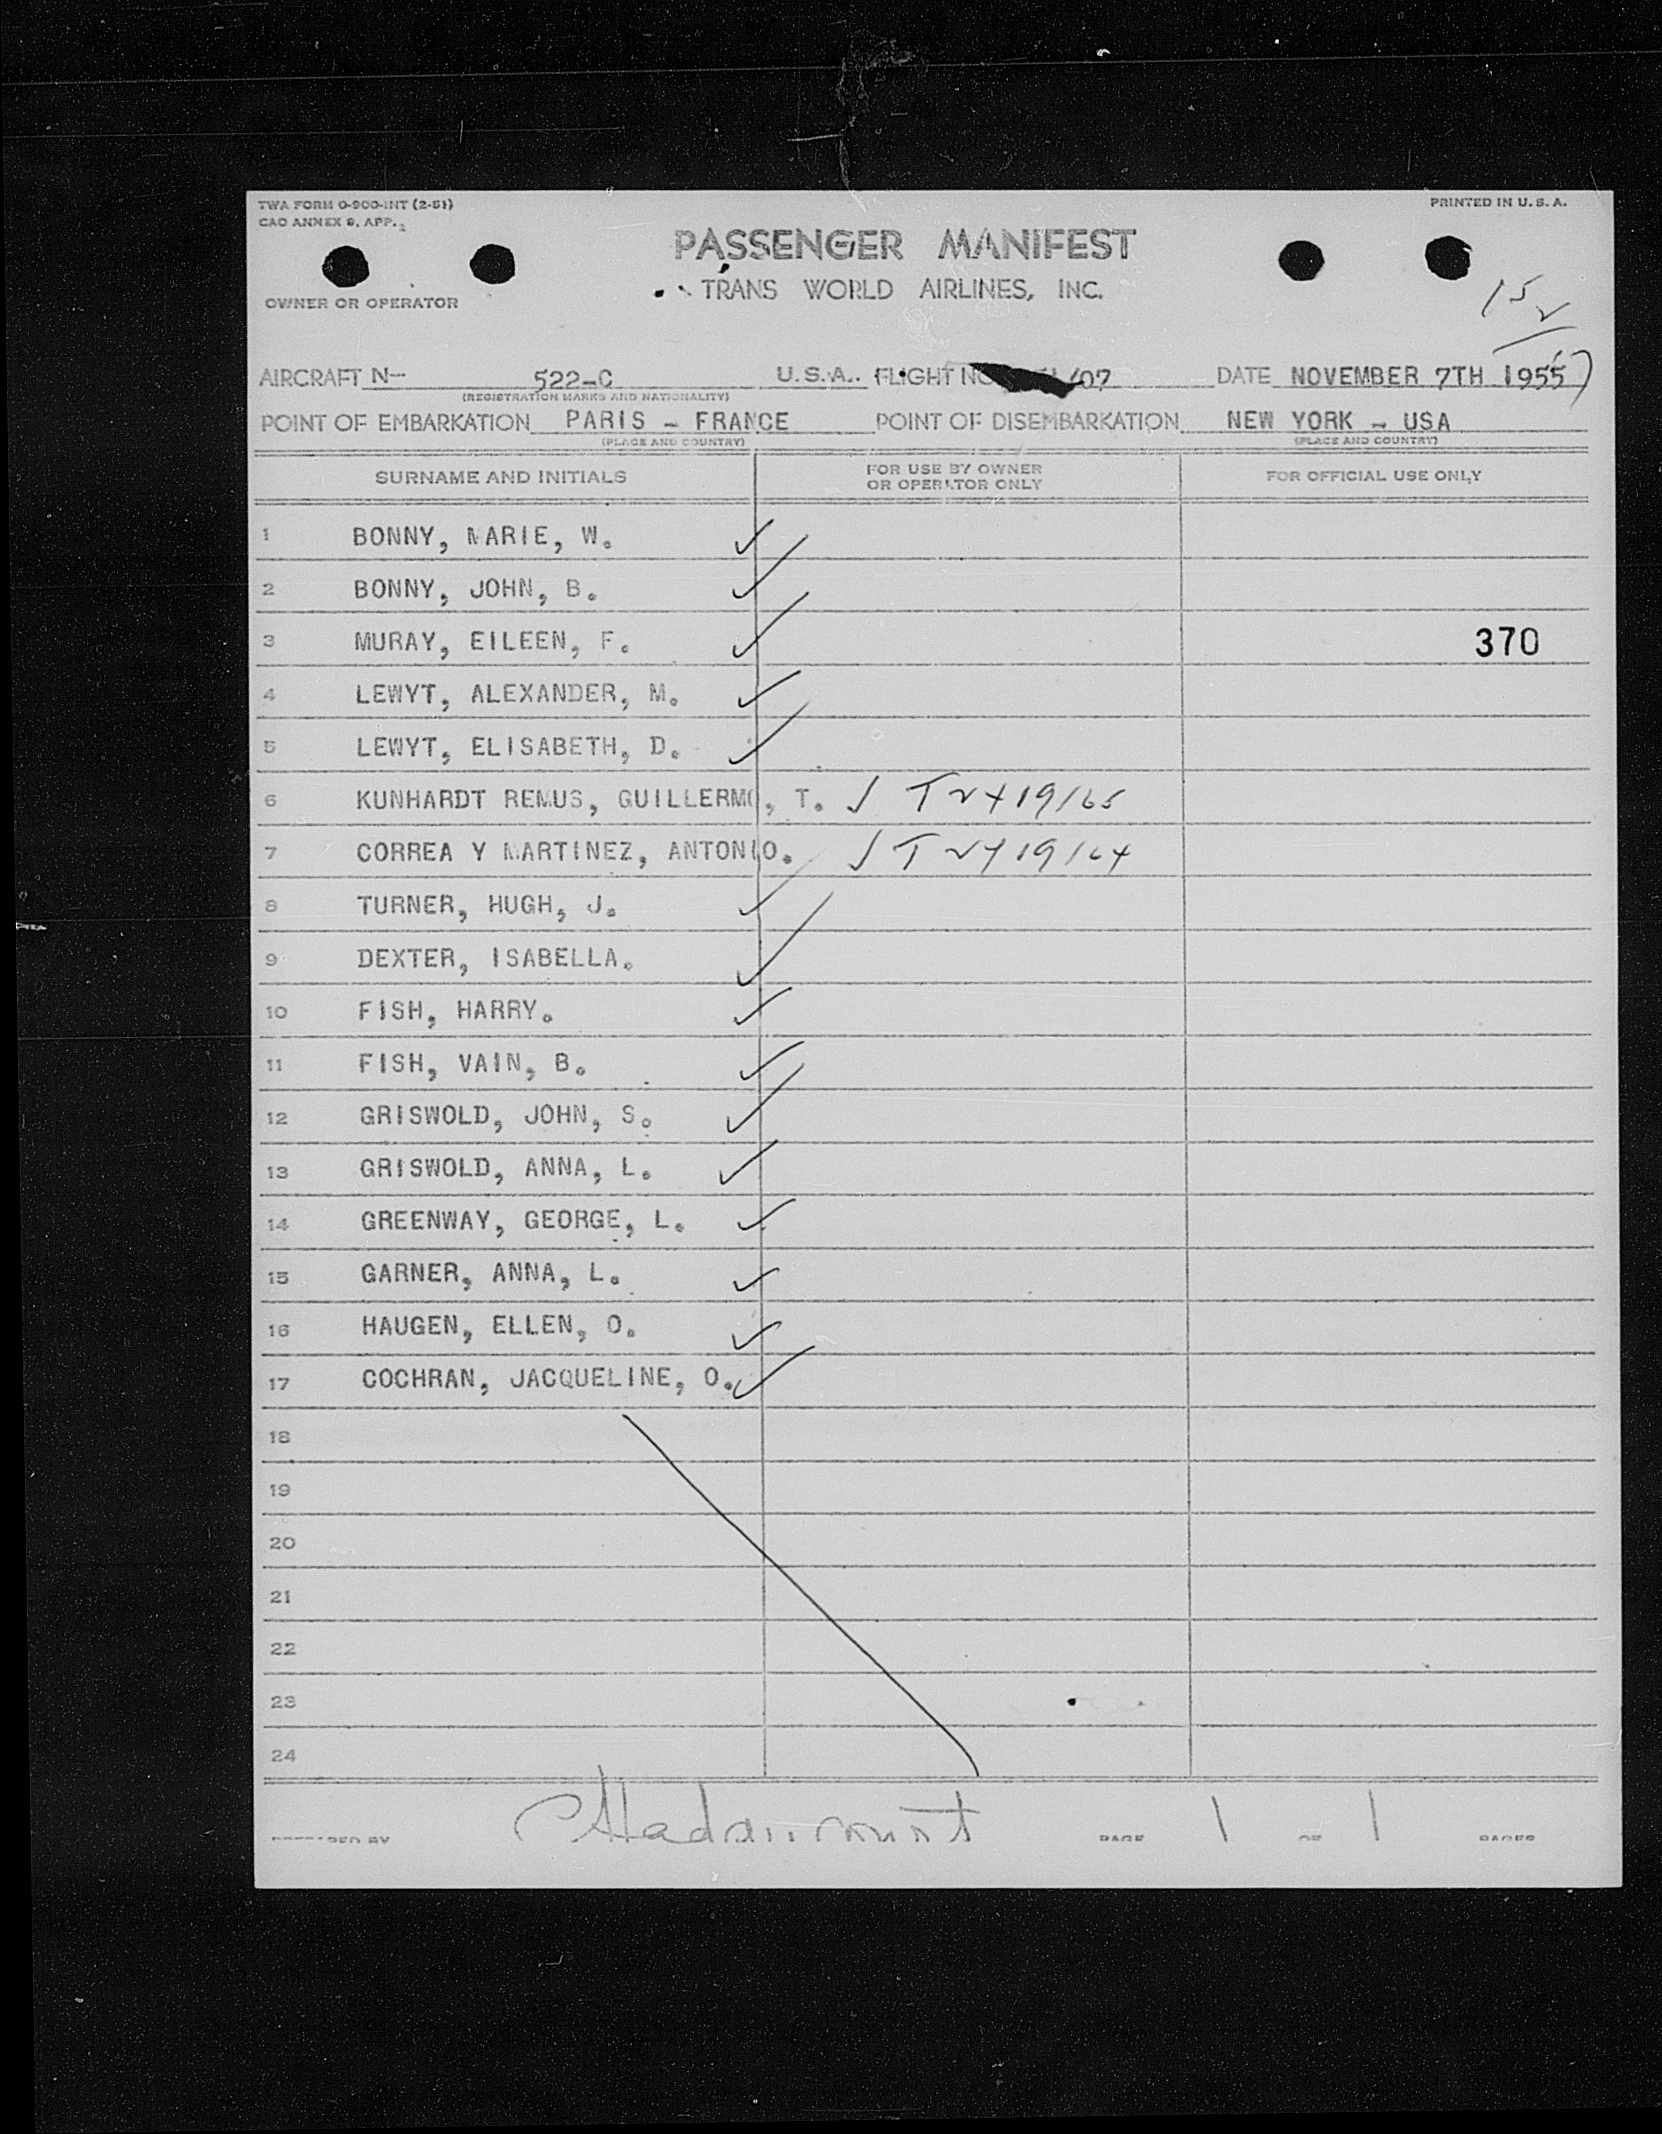 TWA FORM O-900-INT (2-51)
PRINTED IN U. S. A.
CAO ANNEX 9, APP. 2
PASSENGER MANIFEST
TRANS WORLD AIRLINES, INC.
OWNER OR OPERATOR
15
AIRCRAFT N— 522-C U. S. A. FLIGHT NO /07 DATE NOVEMBER 7TH 1955
(REGISTRATION MARKS AND NATIONALITY)
POINT OF EMBARKATION PARIS - FRANCE POINT OF DISEMBARKATION NEW YORK - USA
(PLACE AND COUNTRY) (PLACE AND COUNTRY)
SURNAME AND INITIALS FOR USE BY OWNER OR OPERATOR ONLY FOR OFFICIAL USE ONLY
1 BONNY, MARIE, W. ✓
2 BONNY, JOHN, B. ✓
3 MURAY, EILEEN, F. ✓ 370
4 LEWYT, ALEXANDER, M. ✓
5 LEWYT, ELISABETH, D. ✓
6 KUNHARDT REMUS, GUILLERMO, T. ✓
7 CORREA Y MARTINEZ, ANTONIO. ✓
8 TURNER, HUGH, J. ✓
9 DEXTER, ISABELLA. ✓
10 FISH, HARRY. ✓
11 FISH, VAIN, B. ✓
12 GRISWOLD, JOHN, S. ✓
13 GRISWOLD, ANNA, L. ✓
14 GREENWAY, GEORGE, L. ✓
15 GARNER, ANNA, L. ✓
16 HAUGEN, ELLEN, O. ✓
17 COCHRAN, JACQUELINE, O. ✓
18
19
20
21
22
23
24
PAGE 1 OF 1 PAGES